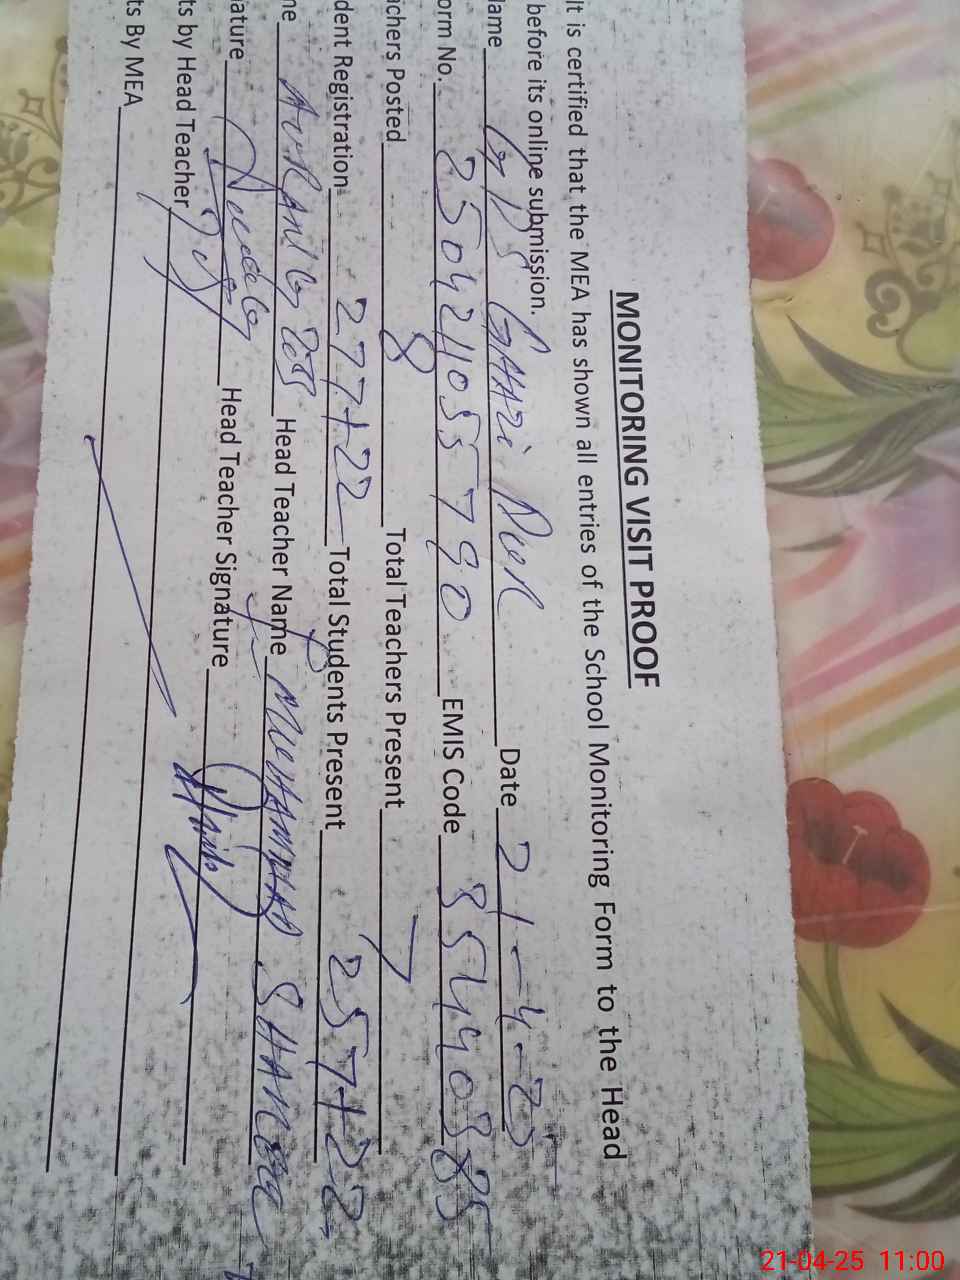 MONITORING VISIT PROOF
It is certified that the MEA has shown all entries of the School Monitoring Form to the Head
before its online submission.
ame GPS GHAZI PUR Date 21-4-25
orm No. 250421055790 EMIS Code 35440385
achers Posted 8 Total Teachers Present 7
dent Registration 277+22 Total Students Present 257+22
me Head Teacher Name MUHAMMAD
nature Head Teacher Signature
ts by Head Teacher
ts By MEA
21-04-25 11:00